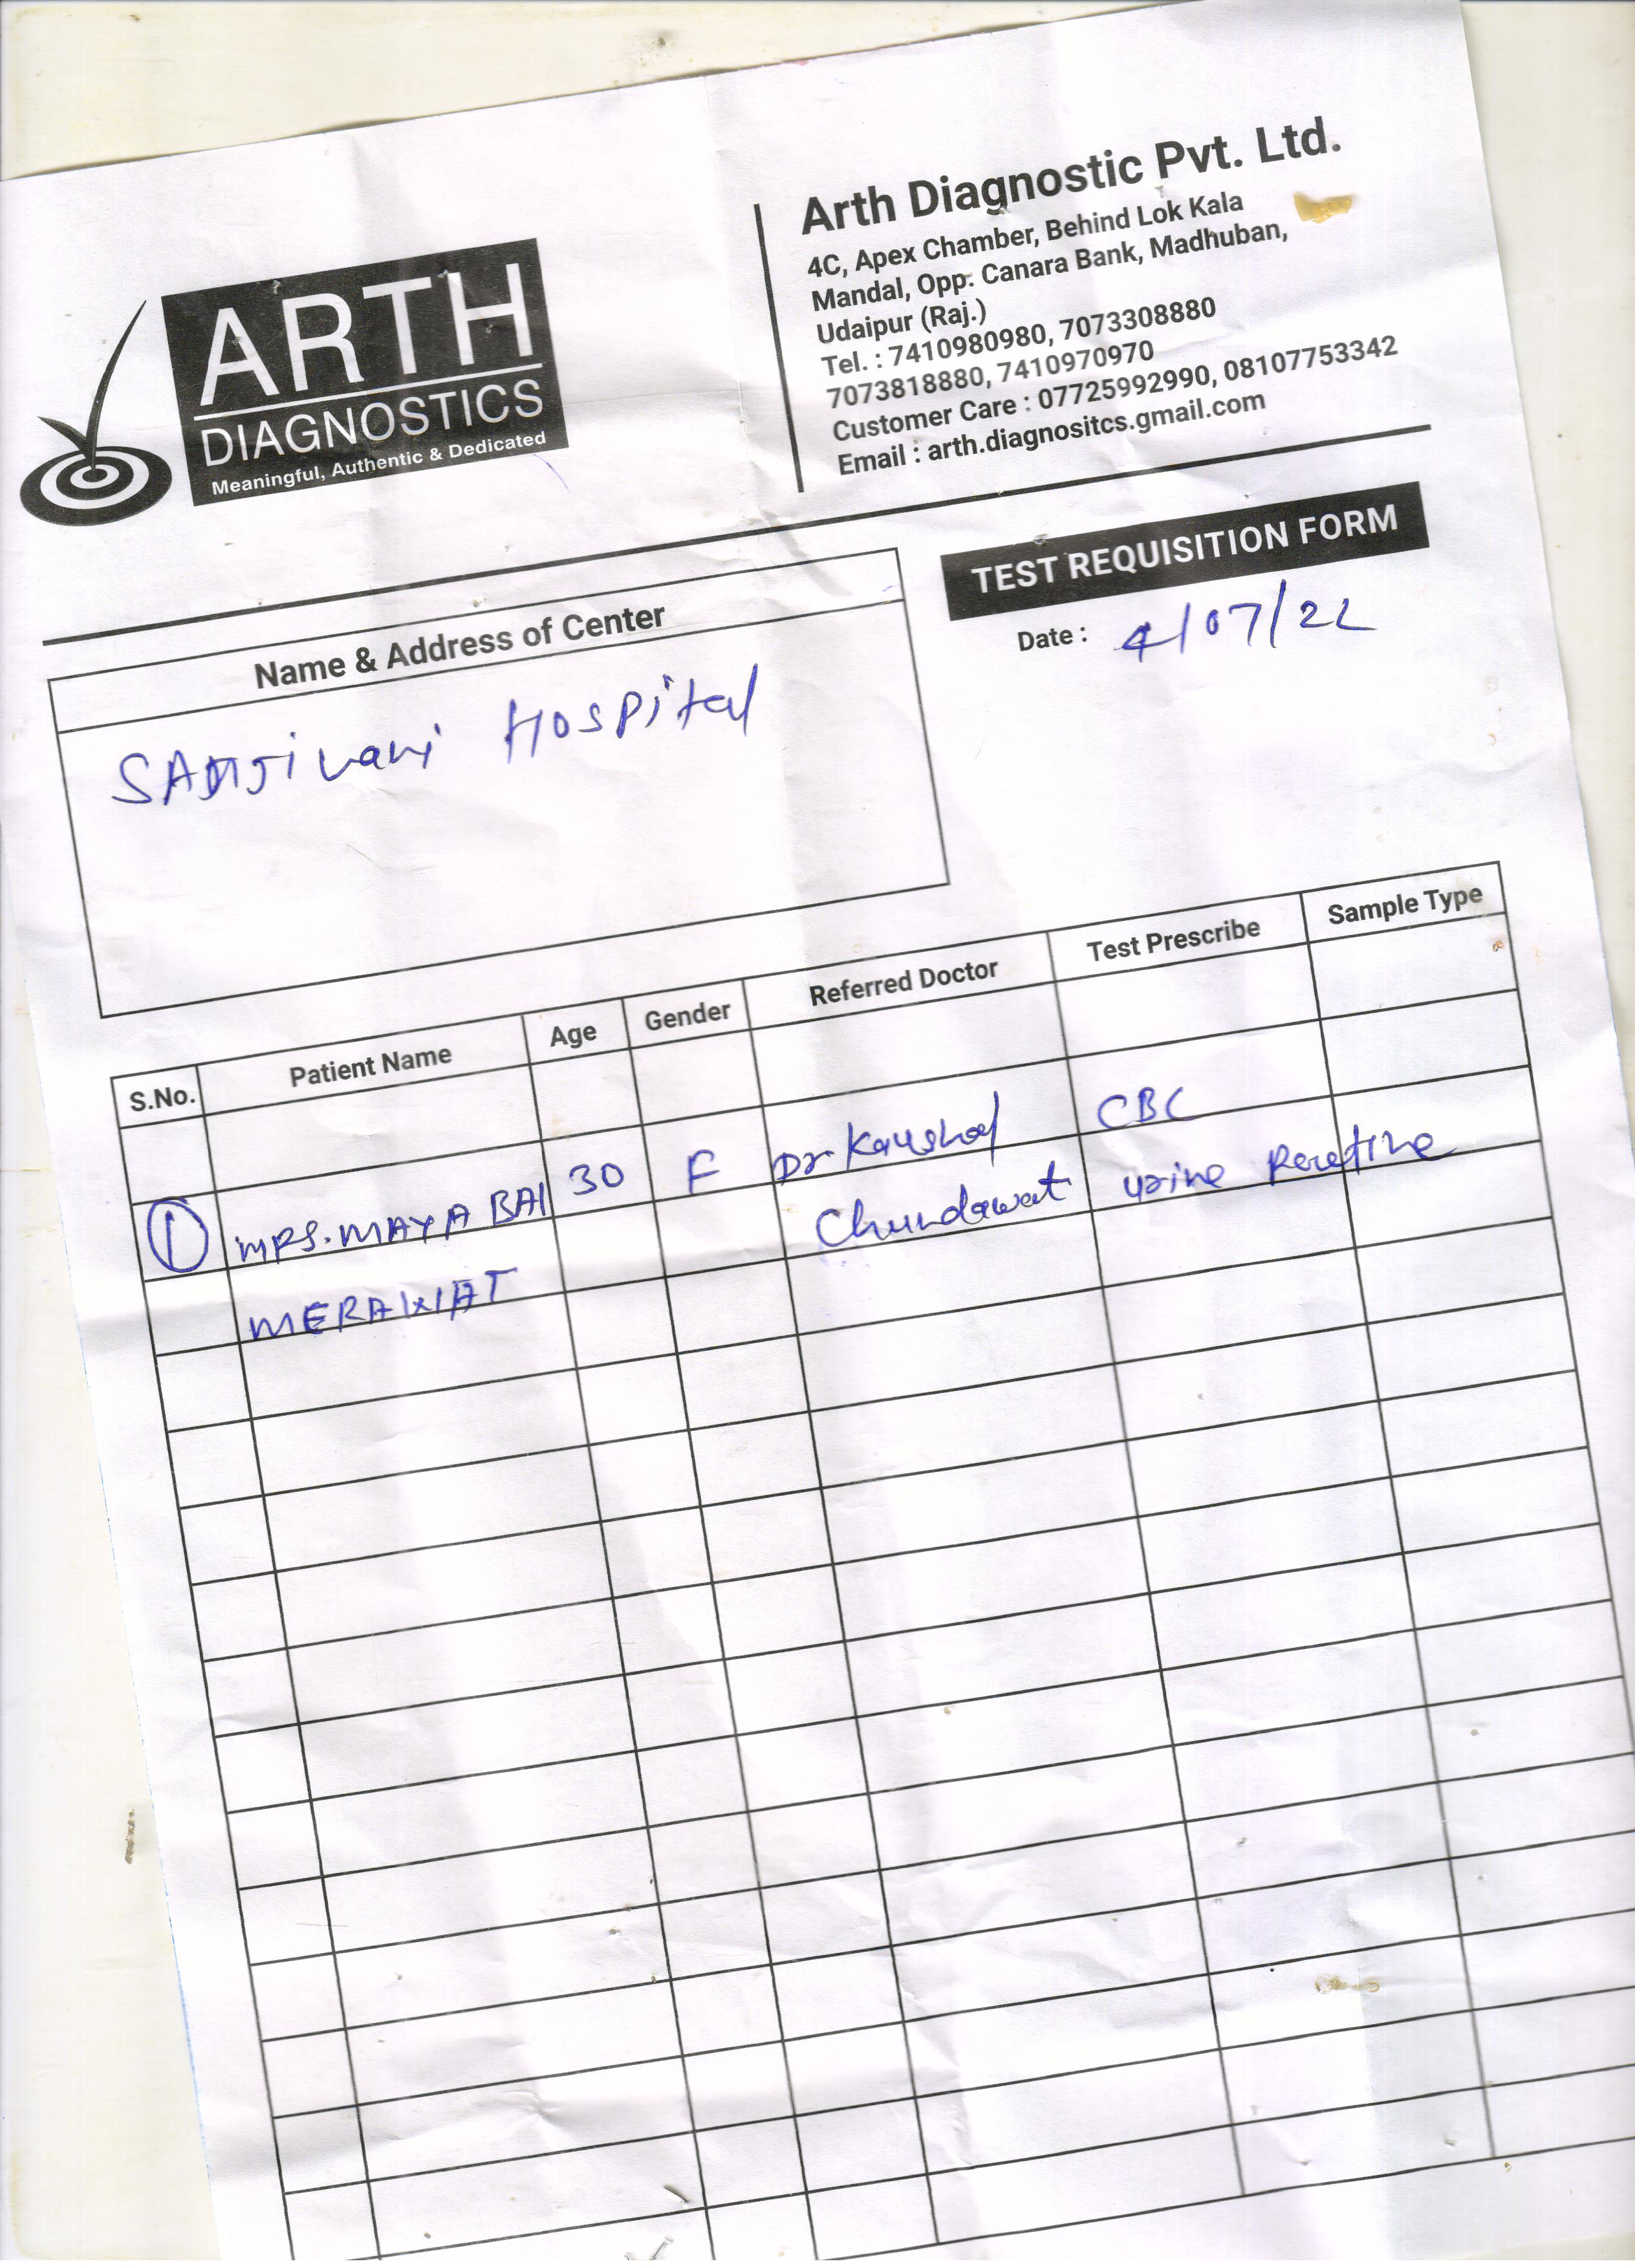 ARTH
DIAGNOSTICS
Meaningful, Authentic & Dedicated
Arth Diagnostic Pvt. Ltd.
4C, Apex Chamber, Behind Lok Kala
Mandal, Opp. Canara Bank, Madhuban,
Udaipur (Raj.)
Tel. : 7410980980, 7073308880
7073818880, 7410970970
Customer Care : 07725992990, 08107753342
Email : arth.diagnositcs.gmail.com
TEST REQUISITION FORM
Date : 4/07/22
Name & Address of Center
SANJivani Hospital
S.No. Patient Name Age Gender Referred Doctor Test Prescribe Sample Type
1 MRS. MAYA BAI 30 F Dr Kaushal CBC
MERAWAT Chundawat urine Routine